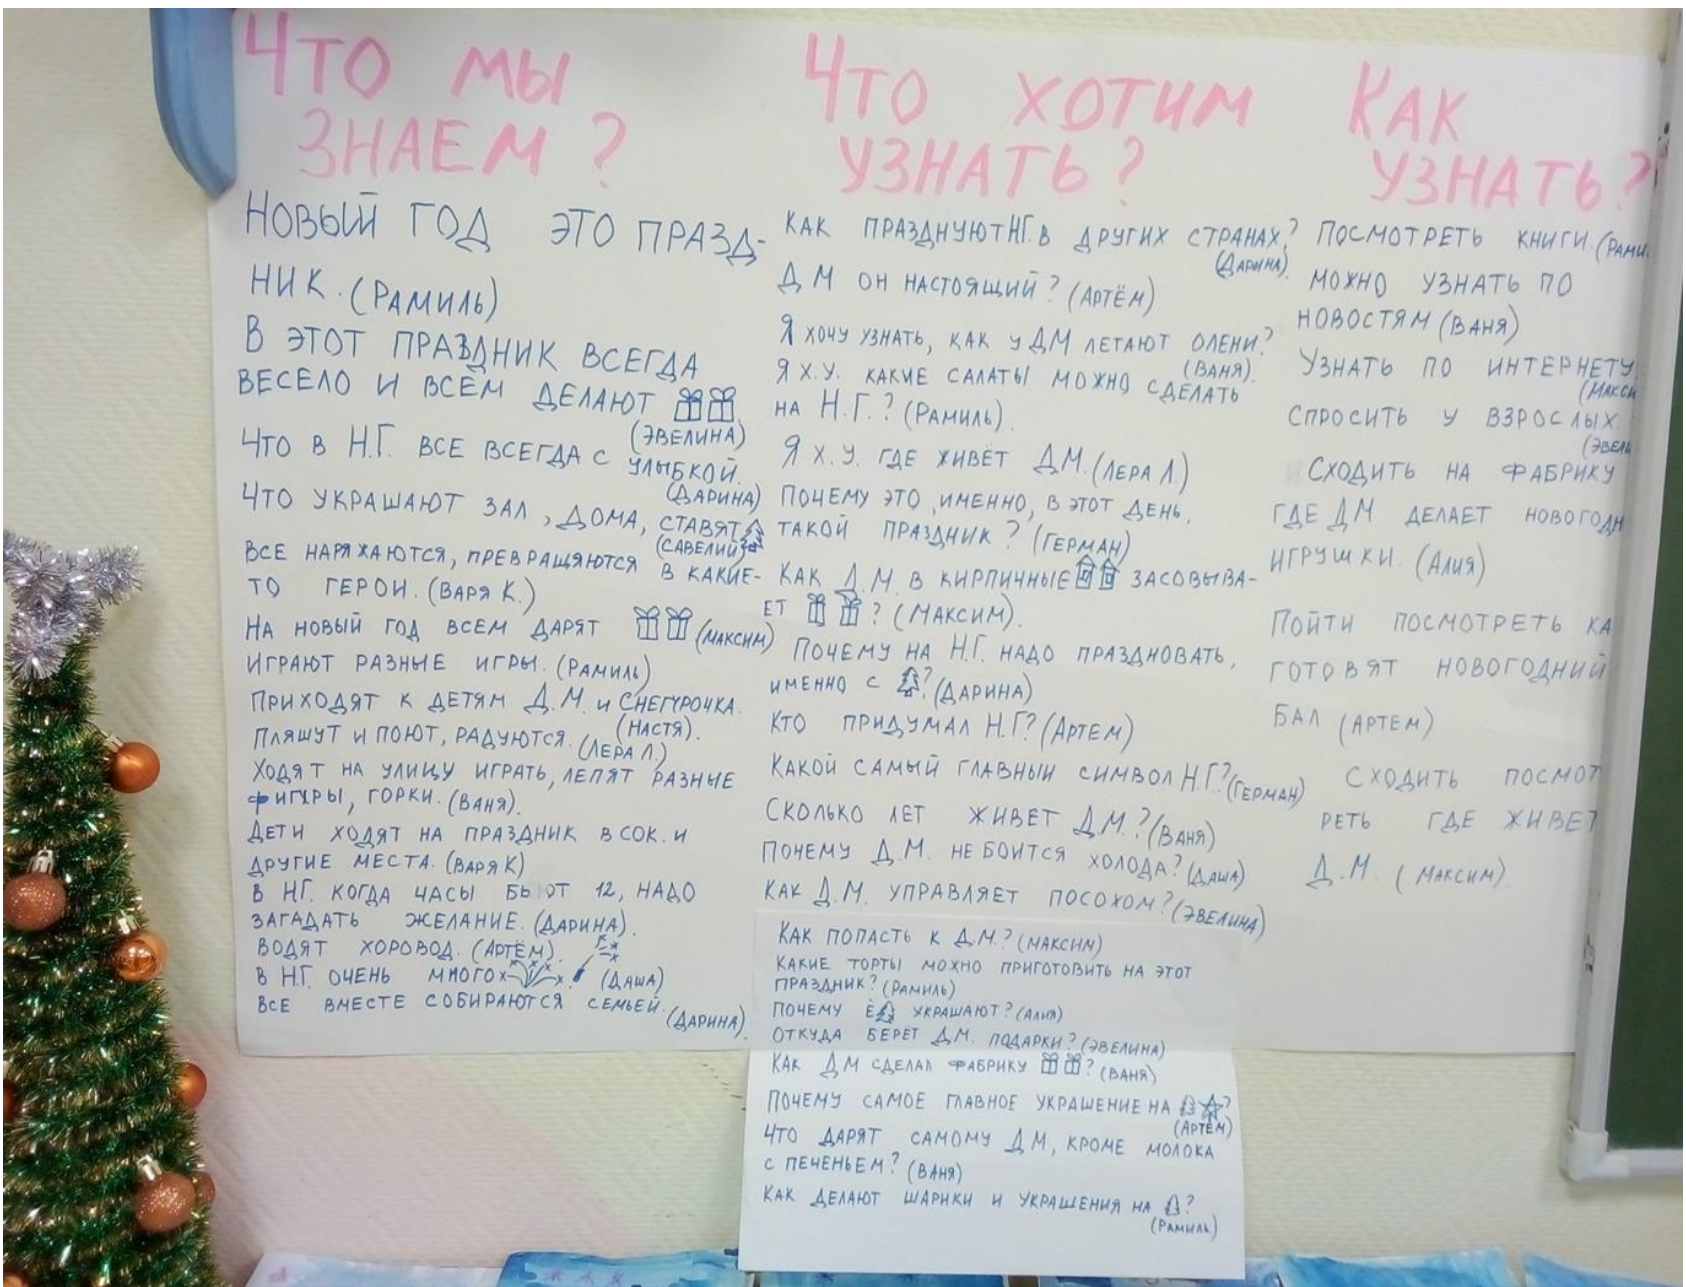 ЧТО МЫ
ЗНАЕМ?
НОВЫЙ ГОД ЭТО ПРАЗД-
НИК. (РАМИЛЬ)
В ЭТОТ ПРАЗДНИК ВСЕГДА
ВЕСЕЛО И ВСЕМ ДЕЛАЮТ
(ЭВЕЛИНА)
ЧТО В Н.Г. ВСЕ ВСЕГДА С УЛЫБКОЙ.
(ДАРИНА)
ЧТО УКРАШАЮТ ЗАЛ, ДОМА, СТАВЯТ
(САВЕЛИЙ)
ВСЕ НАРЯЖАЮТСЯ, ПРЕВРАЩЯЮТСЯ В КАКИЕ-
ТО ГЕРОИ. (ВАРЯ К.)
НА НОВЫЙ ГОД ВСЕМ ДАРЯТ (МАКСИМ)
ИГРАЮТ РАЗНЫЕ ИГРЫ. (РАМИЛЬ)
ПРИХОДЯТ К ДЕТЯМ Д.М. И СНЕГУРОЧКА.
(НАСТЯ).
ПЛЯШУТ И ПОЮТ, РАДУЮТСЯ. (ЛЕРА Л.)
ХОДЯТ НА УЛИЦУ ИГРАТЬ, ЛЕПЯТ РАЗНЫЕ
ФИГУРЫ, ГОРКИ. (ВАНЯ).
ДЕТИ ХОДЯТ НА ПРАЗДНИК В СОК. И
ДРУГИЕ МЕСТА. (ВАРЯ К)
В Н.Г. КОГДА ЧАСЫ БЬЮТ 12, НАДО
ЗАГАДАТЬ ЖЕЛАНИЕ. (ДАРИНА).
ВОДЯТ ХОРОВОД. (АРТЁМ).
В Н.Г. ОЧЕНЬ МНОГО (ДАША)
ВСЕ ВМЕСТЕ СОБИРАЮТСЯ СЕМЬЕЙ.
(ДАРИНА).
ЧТО ХОТИМ
УЗНАТЬ?
КАК ПРАЗДНУЮТ Н.Г. В ДРУГИХ СТРАНАХ?
(ДАРИНА).
Д М ОН НАСТОЯЩИЙ? (АРТЁМ)
Я ХОЧУ УЗНАТЬ, КАК У ДМ ЛЕТАЮТ ОЛЕНИ?
(ВАНЯ).
Я Х.У. КАКИЕ САЛАТЫ МОЖНО СДЕЛАТЬ
НА Н.Г.? (РАМИЛЬ).
Я Х.У. ГДЕ ЖИВЁТ Д.М. (ЛЕРА Л.)
ПОЧЕМУ ЭТО, ИМЕННО, В ЭТОТ ДЕНЬ,
ТАКОЙ ПРАЗДНИК? (ГЕРМАН)
КАК Д.М. В КИРПИЧНЫЕ ЗАСОВЫВА-
ЕТ ? (МАКСИМ).
ПОЧЕМУ НА Н.Г. НАДО ПРАЗДНОВАТЬ,
ИМЕННО С ? (ДАРИНА)
КТО ПРИДУМАЛ Н.Г? (АРТЕМ)
КАКОЙ САМЫЙ ГЛАВНЫЙ СИМВОЛ Н.Г.? (ГЕРМАН)
СКОЛЬКО ЛЕТ ЖИВЕТ Д.М.? (ВАНЯ)
ПОЧЕМУ Д.М. НЕ БОИТСЯ ХОЛОДА? (ДАША)
КАК Д.М. УПРАВЛЯЕТ ПОСОХОМ? (ЭВЕЛИНА)
КАК ПОПАСТЬ К Д.М.? (МАКСИМ)
КАКИЕ ТОРТЫ МОЖНО ПРИГОТОВИТЬ НА ЭТОТ
ПРАЗДНИК? (РАМИЛЬ)
ПОЧЕМУ Ё УКРАШАЮТ? (АЛИЯ)
ОТКУДА БЕРЕТ Д.М. ПОДАРКИ? (ЭВЕЛИНА)
КАК ДМ СДЕЛАЛ ФАБРИКУ ? (ВАНЯ)
ПОЧЕМУ САМОЕ ГЛАВНОЕ УКРАШЕНИЕ НА ?
(АРТЁМ)
ЧТО ДАРЯТ САМОМУ ДМ, КРОМЕ МОЛОКА
С ПЕЧЕНЬЕМ? (ВАНЯ)
КАК ДЕЛАЮТ ШАРИКИ И УКРАШЕНИЯ НА ?
(РАМИЛЬ)
КАК
УЗНАТЬ?
ПОСМОТРЕТЬ КНИГИ. (РАМИ
МОЖНО УЗНАТЬ ПО
НОВОСТЯМ (ВАНЯ)
УЗНАТЬ ПО ИНТЕРНЕТУ.
(МАКСИ
СПРОСИТЬ У ВЗРОСЛЫХ.
(ЭВЕЛИ
СХОДИТЬ НА ФАБРИКУ
ГДЕ ДМ ДЕЛАЕТ НОВОГОДН
ИГРУШКИ. (АЛИЯ)
ПОЙТИ ПОСМОТРЕТЬ КА
ГОТОВЯТ НОВОГОДНИЙ
БАЛ (АРТЕМ)
СХОДИТЬ ПОСМОТ
РЕТЬ ГДЕ ЖИВЕТ
Д.М. (МАКСИМ).